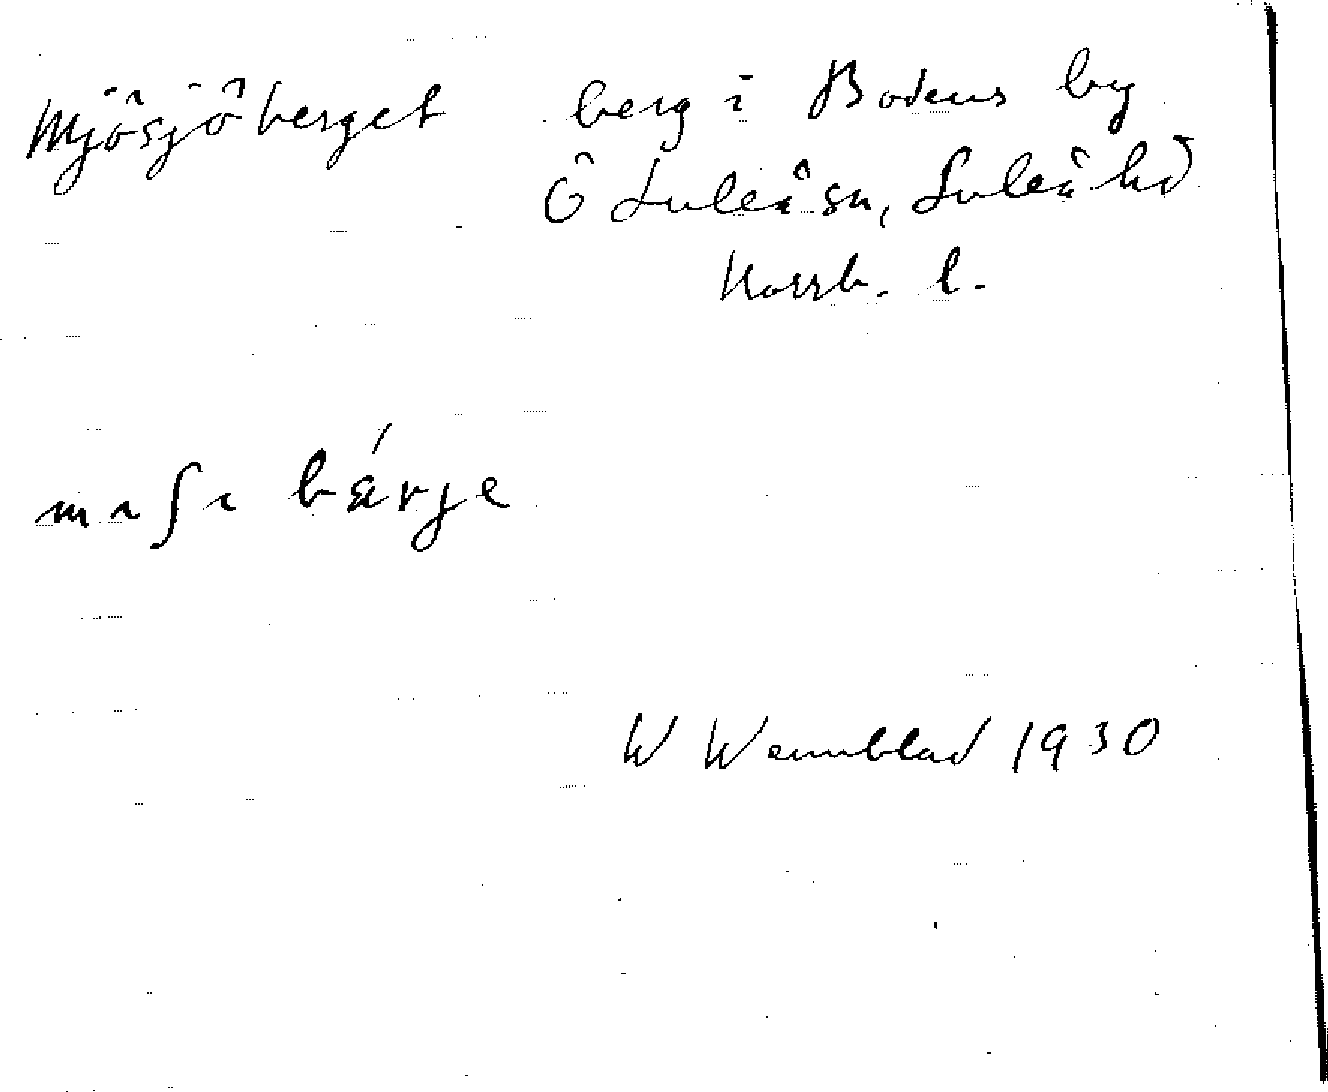 Mjösjöberget berg i Bodens by
Ö Luleå sn, Luleå hd
Norrb. l.
mıʃı bárje
W Wennblad 1930